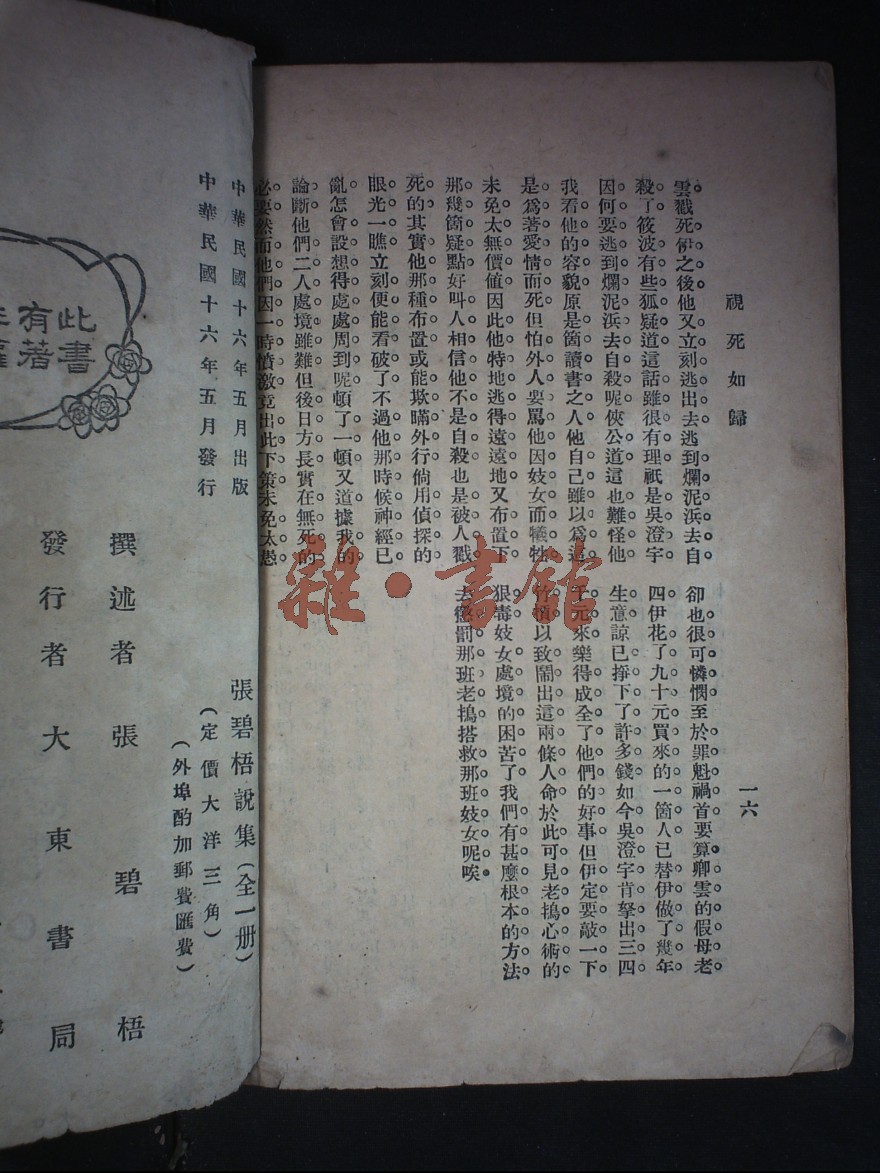 視死如歸
一六
雲戳死伊之後他又立刻逃出去逃到爛泥浜去自
殺了筱波有些狐疑道這話雖很有理祇是吳澄宇
因何要逃到爛泥浜去自殺呢俠公道這也難怪他
我看他的容貌原是箇讀書之人他自己雖以爲這
是爲著愛情而死但怕外人要罵他因妓女而犧牲
未免太無價値因此他特地逃得遠遠地又布置下
那幾箇疑點好叫人相信他不是自殺也是被人戳
死的其實他那種布置或能欺瞞外行倘用偵探的
眼光一瞧立刻便能看破了不過他那時候神經已
亂怎會設想得處處周到呢頓了一頓又道據我的
論斷他們二人處境雖難但後日方長實在無死的
必要然而他們因一時憤激竟出此下策未免太愚
卻也很可憐憫至於罪魁禍首要算卿雲的假母老
四伊花了九十元買來的一箇人已替伊做了幾年
生意諒已掙下了許多錢如今吳澄宇肯拏出三四
千元來樂得成全了他們的好事但伊定要敲一下
竹槓以致鬧出這兩條人命於此可見老鴇心術的
狠毒妓女處境的困苦了我們有甚麼根本的方法
去懲罰那班老鴇搭救那班妓女呢唉
雜·書館
中華民國十六年五月出版
中華民國十六年五月發行
張碧梧說集(全一册)
(定價大洋三角)
(外埠酌加郵費匯費)
撰述者張碧梧
發行者大東書局
此書
有著